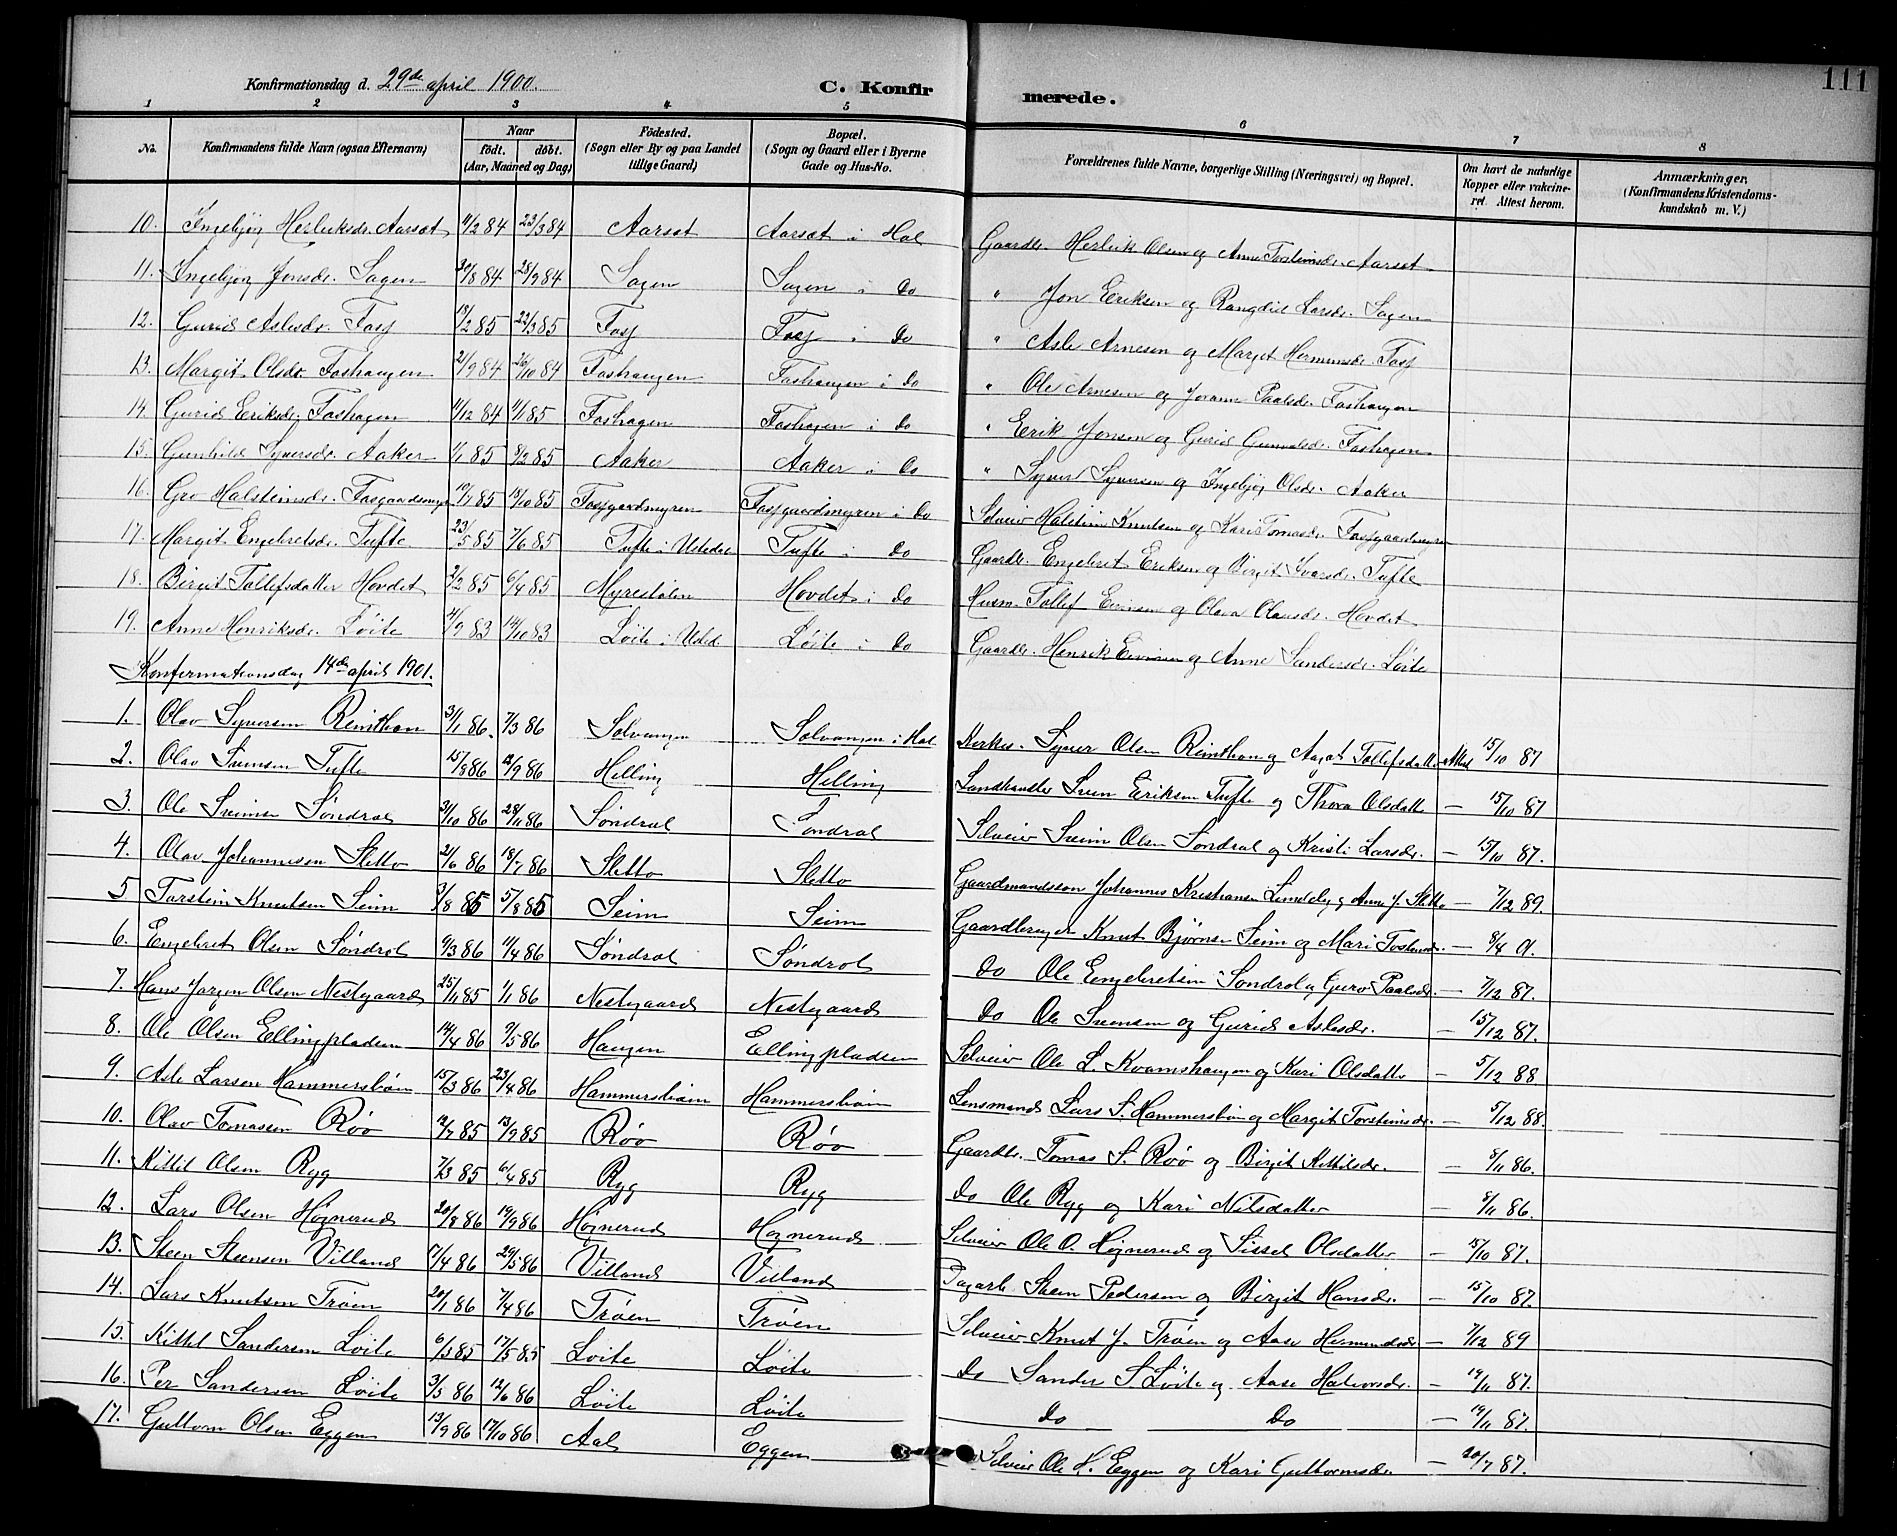 111
Konfirmationsdag d. 29de april 1900.
C. Konfirmerede.
1 2 3 4 5 6 7 8
No. Konfirmandens fulde Navn (ogsaa Efternavn) Naar födt. döbt. (Aar, Maaned og Dag) Födested. (Sogn eller By og paa Landet tillige Gaard) Bopæl. (Sogn og Gaard eller i Byerne Gade og Hus-No. Forældrenes fulde Navne, borgerlige Stilling (Næringsvei) og Bopæl. Om havt de naturlige Kopper eller vakcineret. Attest herom. Anmærkninger. (Konfirmandens Kristendomskundskab m. V.)
10. Ingebjög Herleiksdr. Aarsæt 11/2 84 23/3 84 Aarsæt Aarsæt i Hol Gaardbr. Herleik Olsen og Anne Tosteinsdr. Aarsæt
11. Ingebjörg Jonsdr. Sagen 30/8 84 28/9 84 Sagen Sagen i do " Jon Eeriksen og Rangdid Larsdr. Sagen
12. Gurid Aslesdr. Fosj 22/3 85 Fosj Fosj i do " Asle Arnesen og Margit Hermunsdr. Fosj
13. Margit Olsdr. Foshaugen 21/9 84 26/10 84 Foshaugen Foshaugen i do " Ole Arnesen og Jorann Paalsdr. Foshaugen
14. Gurid Eriksdr. Foshagen 11/12 84 1/1 85 Foshagen Foshagen i do " Erik Jonsen og Gurid Gunvalsdr. Foshagen
15. Gunhild Syversdr. Aaker 1/1 85 8/2 85 Aaker Aaker i do " Syver Syversen og Ingebjög Olsdr. Aaker
16. Gro Halsteinsdr. Fosgaardsmyr 85 10 85 Fosjgaardmyren Fosjgaardmyren i do Selveier Halstein Knutsen og Kari Tomasdr. Fosjgaardmyren
17. Margit Engebretsdr. Tufte 23/5 85 7/6 85 Tufte i Ustedal Tufte i do Gaardbr. Engebret Eriksen og Birgit Ivarsdr. Tufte
18. Birgit Tollefsdatter Hovdet 2/2 85 6/4 85 Myrestölen Hovdet i do Husm. Tollef Eivinsen og Olava Olausdr. Hovdet
19. Anne Henriksdr. Löite 9 83 14/10 83 Löite i Ustedal Löite i do Gaardbr. Henrik Eivinsen og Anne Sandersdr. Löite
Konfirmationsdag 14de april 1901.
1. Olav Syversen Reinthon 31/1 86. 7/3 86 Solvangen Solvangen i Hol Kirkes. Syver Olsen Reinthon og Aagot Tollefsdatter Attest 15/10 87
2. Olav Svensen Tufte 15/8 86 12/9 86 Helling Helling Landhandler Sven Eriksen Tufte og Thora Olsdatter — 15/10 87
3. Ole Sveinsen Söndrol 31/10 86 28/11 86 Söndrol Söndrol Selveier Svein Olsen Söndrol og Kristi Larsdr. — 15/10 87.
4. Olav Johannesen Sletto 21/6 86 18/7 86 Sletto Sletto Gaardmandssøn Johannes Kristiansen Lundeby og Anne J. Sletto — 7/12 89.
5 Torstein Knutsen Seim 3/8 85 5/8 85 Seim Seim Gaardbruger Knut Björnsen Seim og Mari Tosteinsdr. — 9/4 91.
6. Engebret Olsen Söndrol 9/3 86 11/4 86 Söndrol Söndrol do Ole Engebretsen Söndrol og Guro Paalsdr. — 7/12 87.
7. Hans Jorgen Olsen Nestegaard 25/11 85 1/1 86 Nestegaard Nestegaard do Ole Svensen og Gurid Aslesdr. — 15/12 87.
8. Ole Olsen Ellingpladsen 14/4 86 9/5 86 Haugen Ellingpladsen Selveier Ole L. Kvamshaugen og Kari Olsdatter — 5/12 88
9. Asle Larsen Hammersböen 15/3 86 23/4 86 Hammersböen Hammersböen Lensmand Lars S. Hammersböen og Margit Torsteinsdr. — 5/12 88.
10. Olav Tomassen Röö 12/7 85 13/9 85 Röö Röö Gaardbr. Tomas S. Röö og Birgit Kittilsdr. — 8/11 86.
11. Kittil Olsen Ryg 7/3 85 6/4 85 Ryg Ryg do Ole Ryg og Kari Nilsdatter — 8/11 86.
12. Lars Olsen Högnerud 20/8 86 19/9 86 Högnerud Högnerud Selveier Ole O. Högnerud og Sissel Olsdatter — 15/10 87.
13. Steen Steensen Villand 17/4 86 29/5 86 Villand Villand Dagarb. Steen Pedersen og Birgit Hansdr. — 15/10 87.
14. Lars Knutsen Tröen 20/1 86 7/4 86 Tröen Tröen Selveier Knut J. Tröen og Aase Hermundsdr. — 7/12 89
15. Kittil Sandersen Löite 6/3 85 17/5 85 Löite Löite do Sander S Löite og Aase Halvorsdr. — 19/11 87.
16. Per Sandersen Löite 3/5 86 12/6 86 Löite Löite do do — 19/11 87.
17. Guttorm Olsen Eggen 13/9 86 17/10 86 Aal Eggen Selveier Ole H. Eggen og Kari Guttormsdr. — 20/7 87.